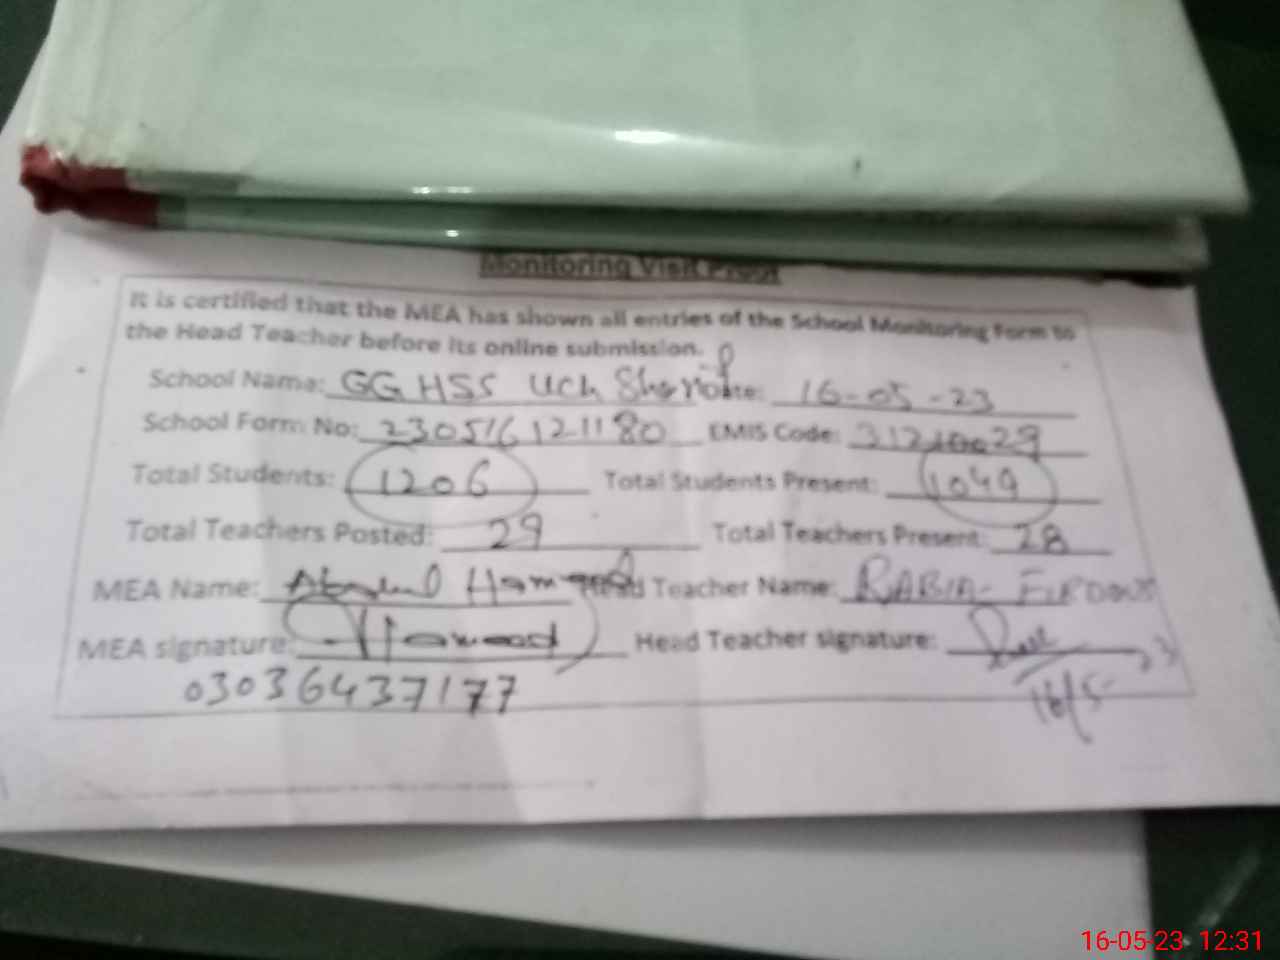 Monitoring Visit Proof
It is certified that the MEA has shown all entries of the School Monitoring Form to
the Head Teacher before its online submission.
School Name: GGHSS Uch Sharif Date: 16-05-23
School Form No: 230516121180 EMIS Code: 31210029
Total Students: 1206 Total Students Present: 1049
Total Teachers Posted: 29 Total Teachers Present: 28
MEA Name: Abdul Hameed Head Teacher Name: RABIA FIRDOUS
MEA signature: Hameed Head Teacher signature:
03036437177 16/5 23
16-05-23 12:31